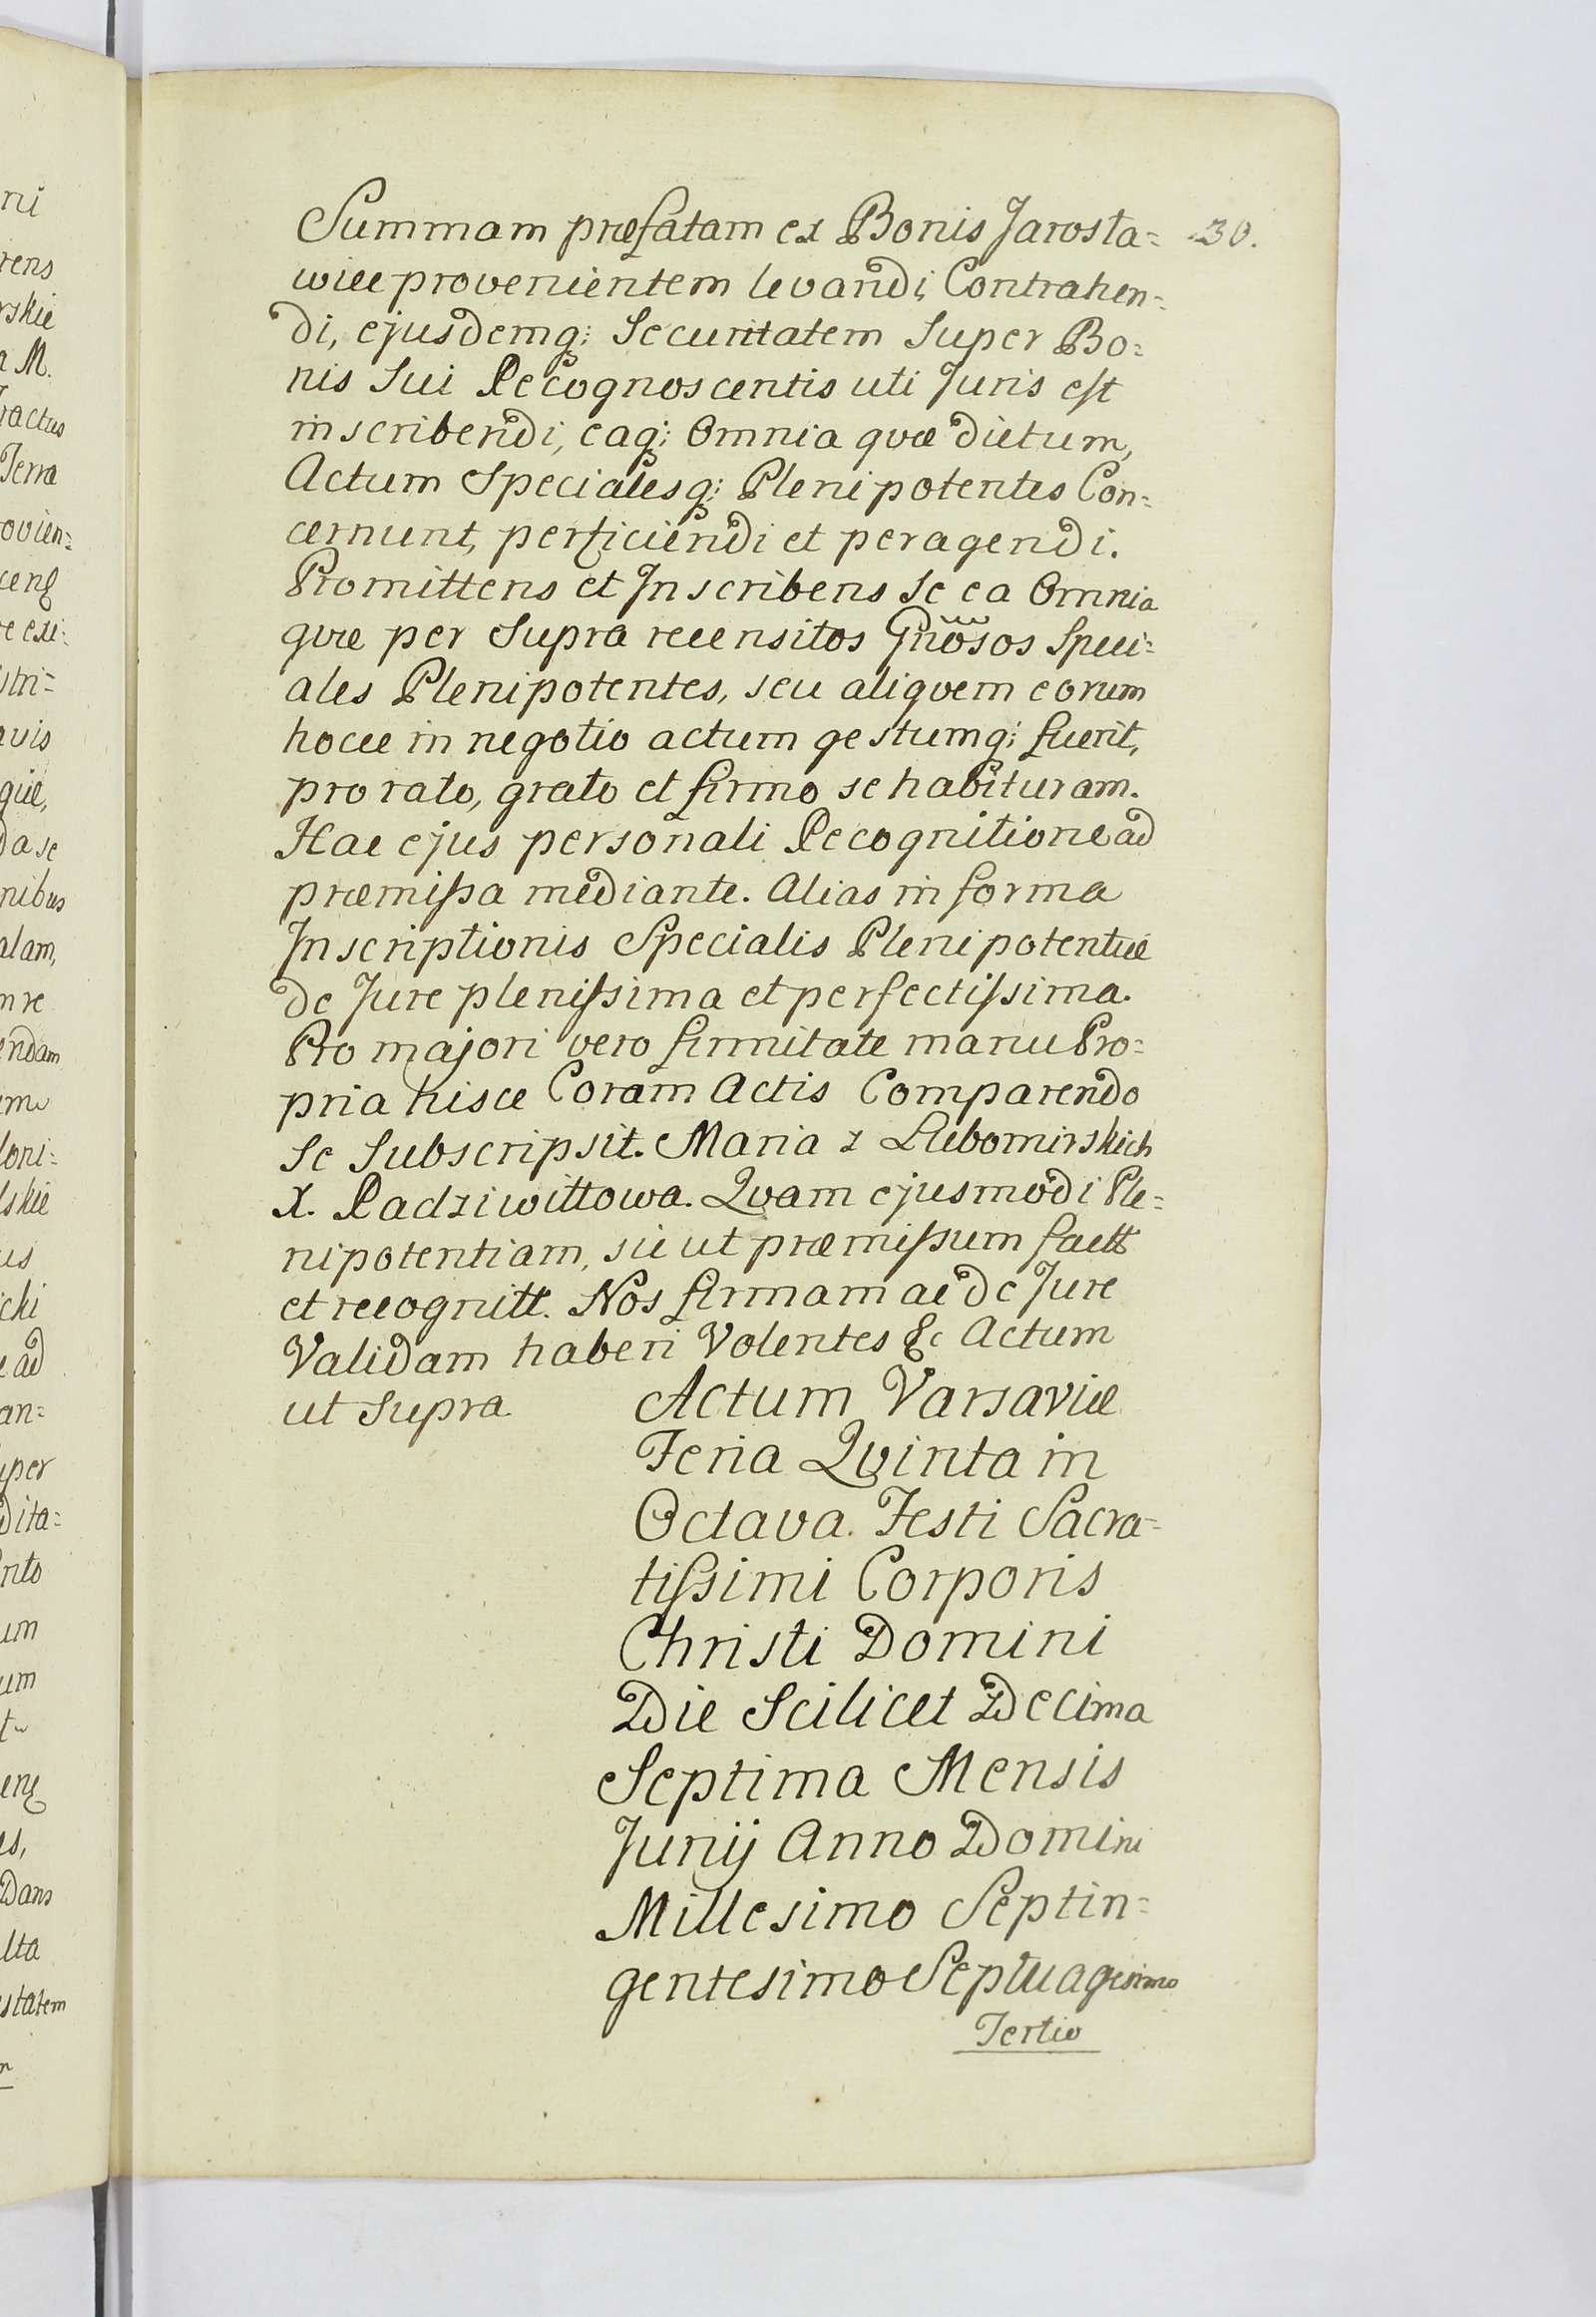 Summam præfatam ex Bonis Jarosła= 30.
wice provenientem levandi, Contrahen=
di, ejusdemq; Securitatem Super Bo=
nis Sui Recognoscentis uti Juris est
inscribendi, eaq; Omnia quæ dictum,
Actum Specialesq; Plenipotentes Con=
cernunt, perficiendi et peragendi.
Promittens et Inscribens Se ea Omnia
quæ per Supra recensitos Gnosos Speci=
ales Plenipotentes, seu aliquem eorum
hocce in negotio actum gestumq; fuerit,
pro rato, grato et firmo se habituram.
Hac ejus personali Recognitione ad
præmissa mediante. Alias in forma
Inscriptionis Specialis Plenipotentiæ
de Jure plenissima et perfectissima.
Pro majori vero firmitate manu Pro=
pria hisce Coram Actis Comparendo
Se Subscripsit. Maria z Lubomirskich
X. Radziwiłłowa. Quam ejusmodi Ple=
nipotentiam, sic ut præmissum factt
et recognitt. Nos firmam ac de Jure
Validam haberi Volentes &c Actum
ut Supra
Actum Varsaviæ
Feria Quinta in
Octava Festi Sacra=
tissimi Corporis
Christi Domini
Die Scilicet Decima
Septima Mensis
Junij Anno Domini
Millesimo Septin=
gentesimo Septuagesimo
Tertio